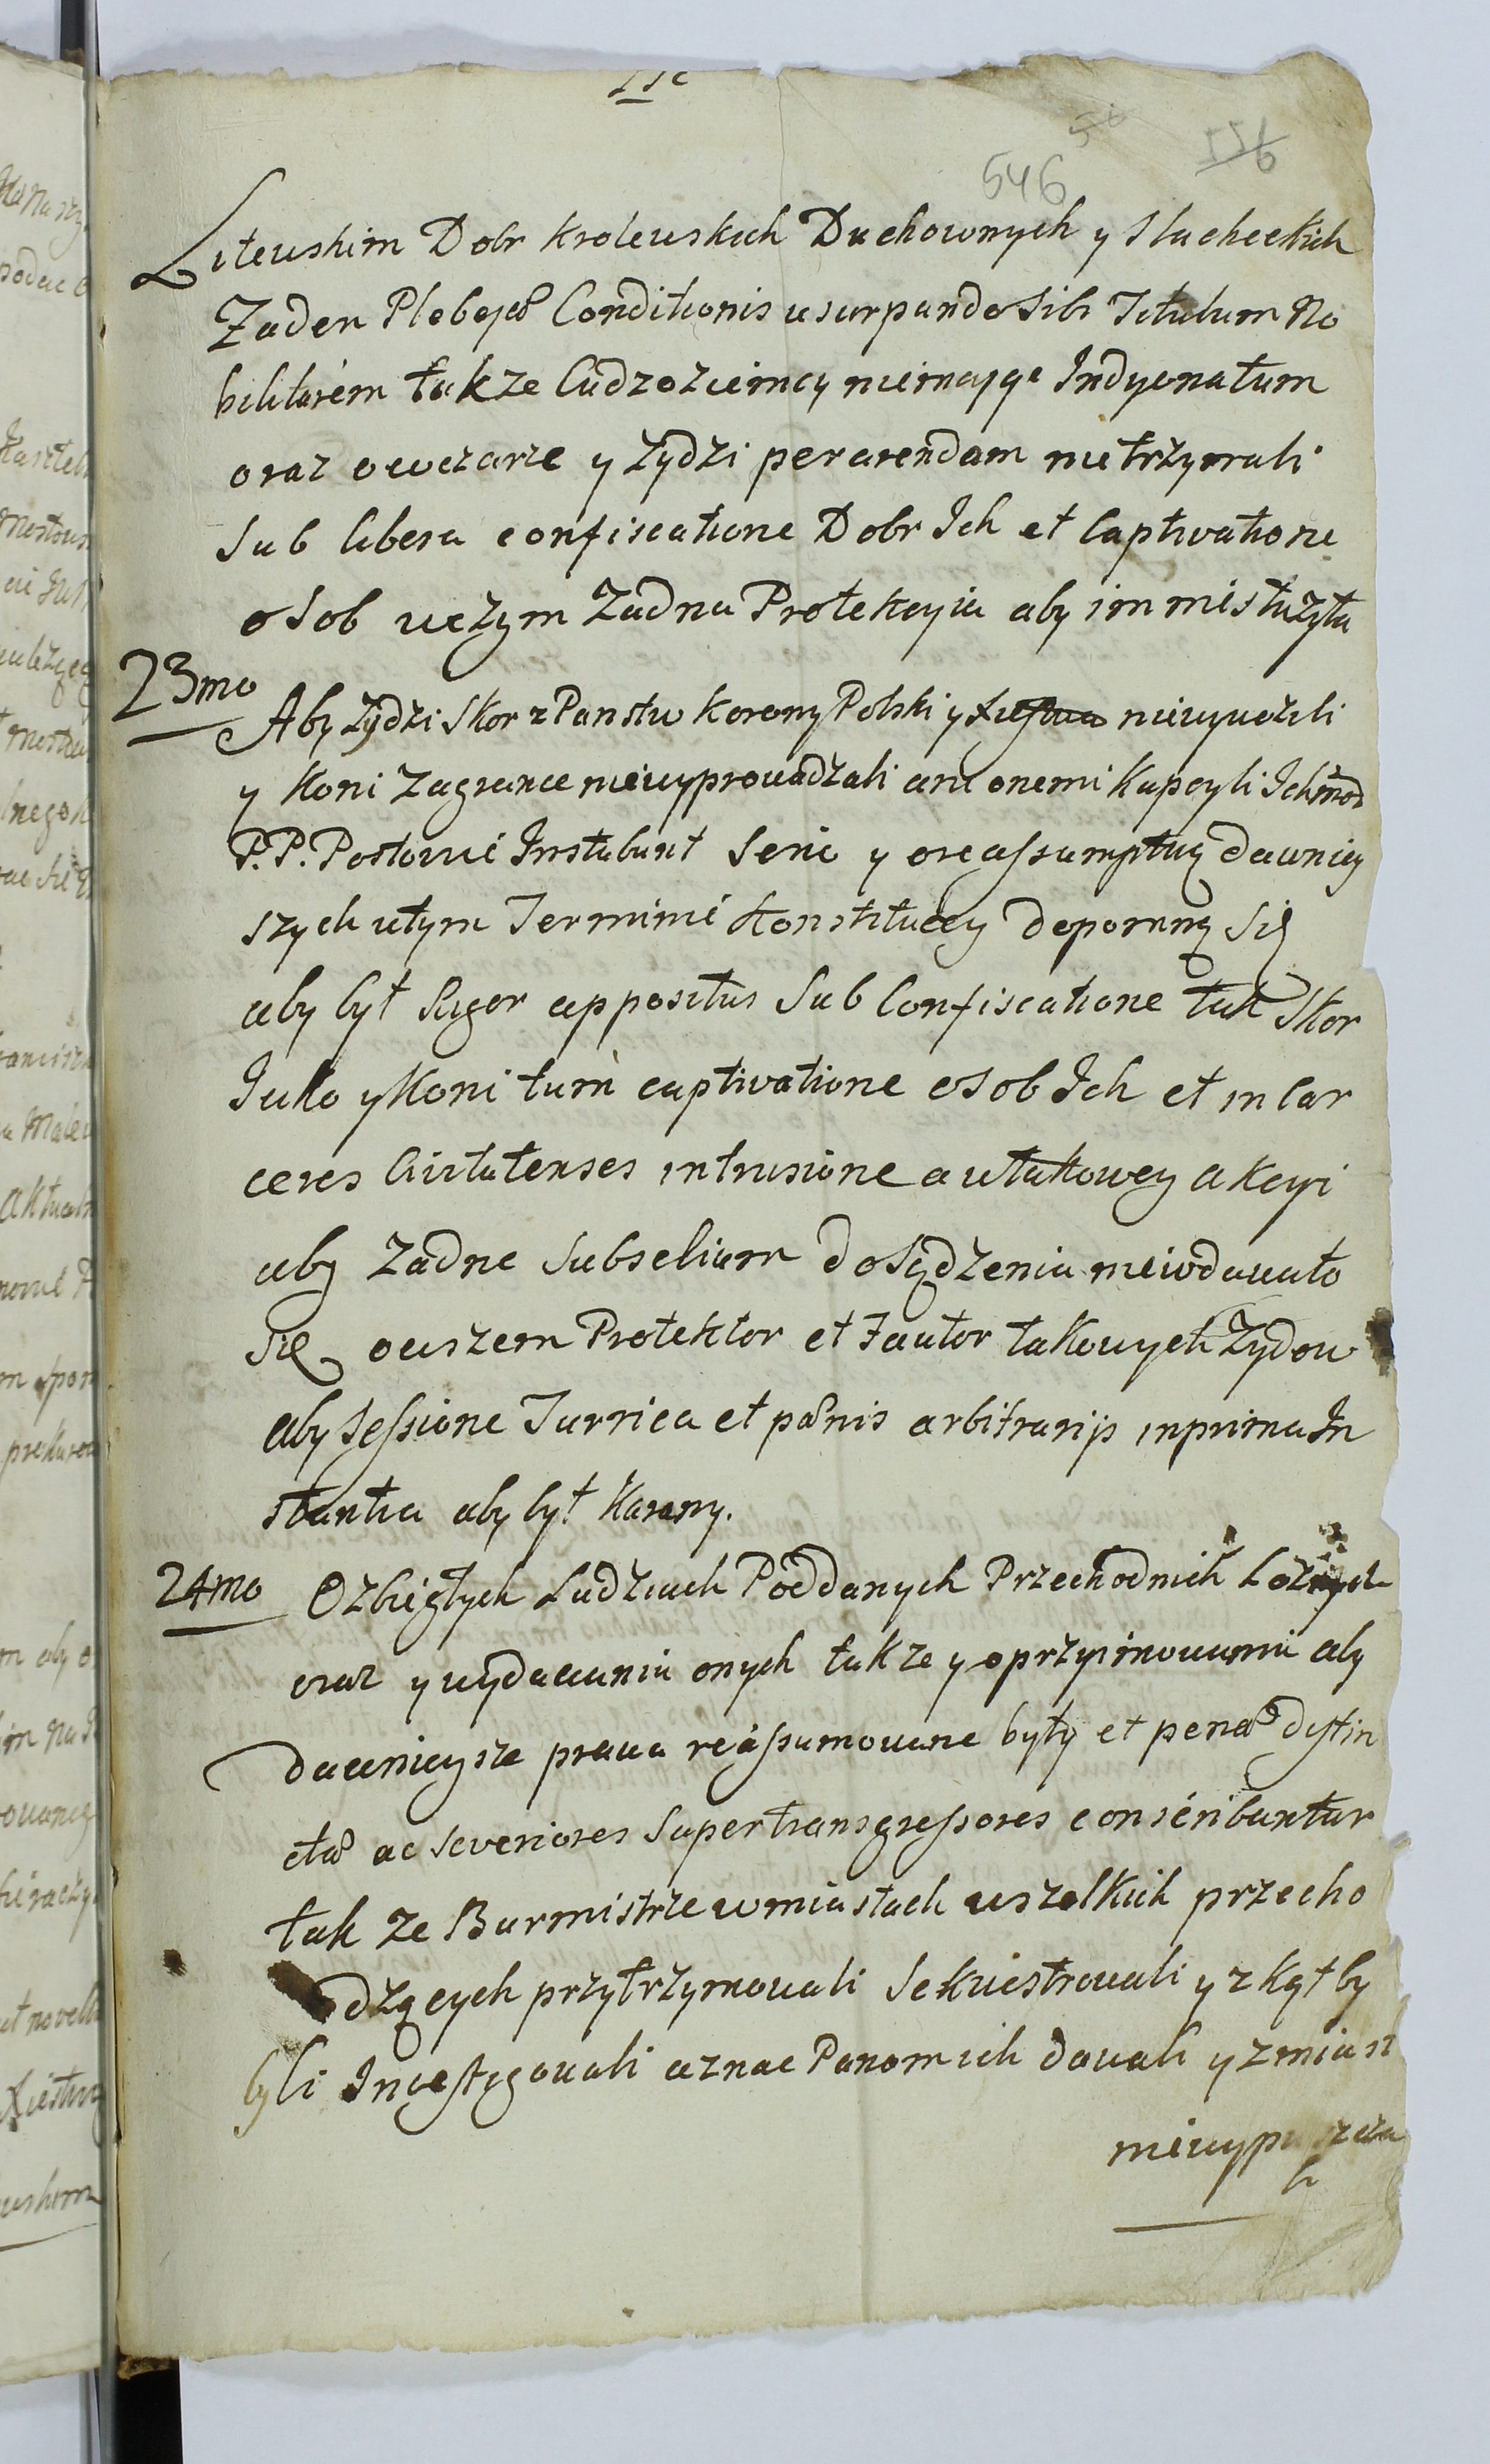 546
556
Litewskim Dobr Krolewskich Duchownych y Slacheckich
Zaden Plebejæ Conditionis usurpando Sibi Titulum No
bilitarem także Cudzoziemcy niemaiące Indygenatum
oraz owczarze y Zydzi per arendam nietrzymali
Sub libera confiscatione Dobr Ich et Captivatione
osob wczym Zadna Protekcyia aby im niesłużyła
23mo
Aby Zydzi Skor z Panstw Korony Polski y niewywozili
y Koni Zagranice niewyprowadzali ani onemi Kupczyli Ichmość
P.P. Posłowie Instabunt Serio y o reassumptią dawniey
szych wtym Terminie Konstitucey dopomną Się
aby był Rigor appositus Sub Confiscatione tak Skor
Jako y Koni tum captivatione osob Ich et in Car
ceres Civitatenses intrusione a wtakowey akcyi
aby Zadne Subselium do Sądzenia niewdawało
Się owszem Protektor et Fautor takowych Zydow
aby Sessione Turrica et pænis arbitrarijs in prima In
stantia aby był Karany.
24mo O zbiegłych Ludziach Poddanych Przechodnich Loznych
oraz y wydawaniu onych także y o przyimowaniu aby
dawnieysze prawa reassumowane były et penæ distin
ctæ ac severiores Super transgressores conscribuntur
tak ze Burmistrze w miastach wszelkich przecho
dzących przytrzymowali Sekwestrowali y z kąt by
byli Inwestygowali a znac Panom ich dawali y z miast
niewypuszcza
li